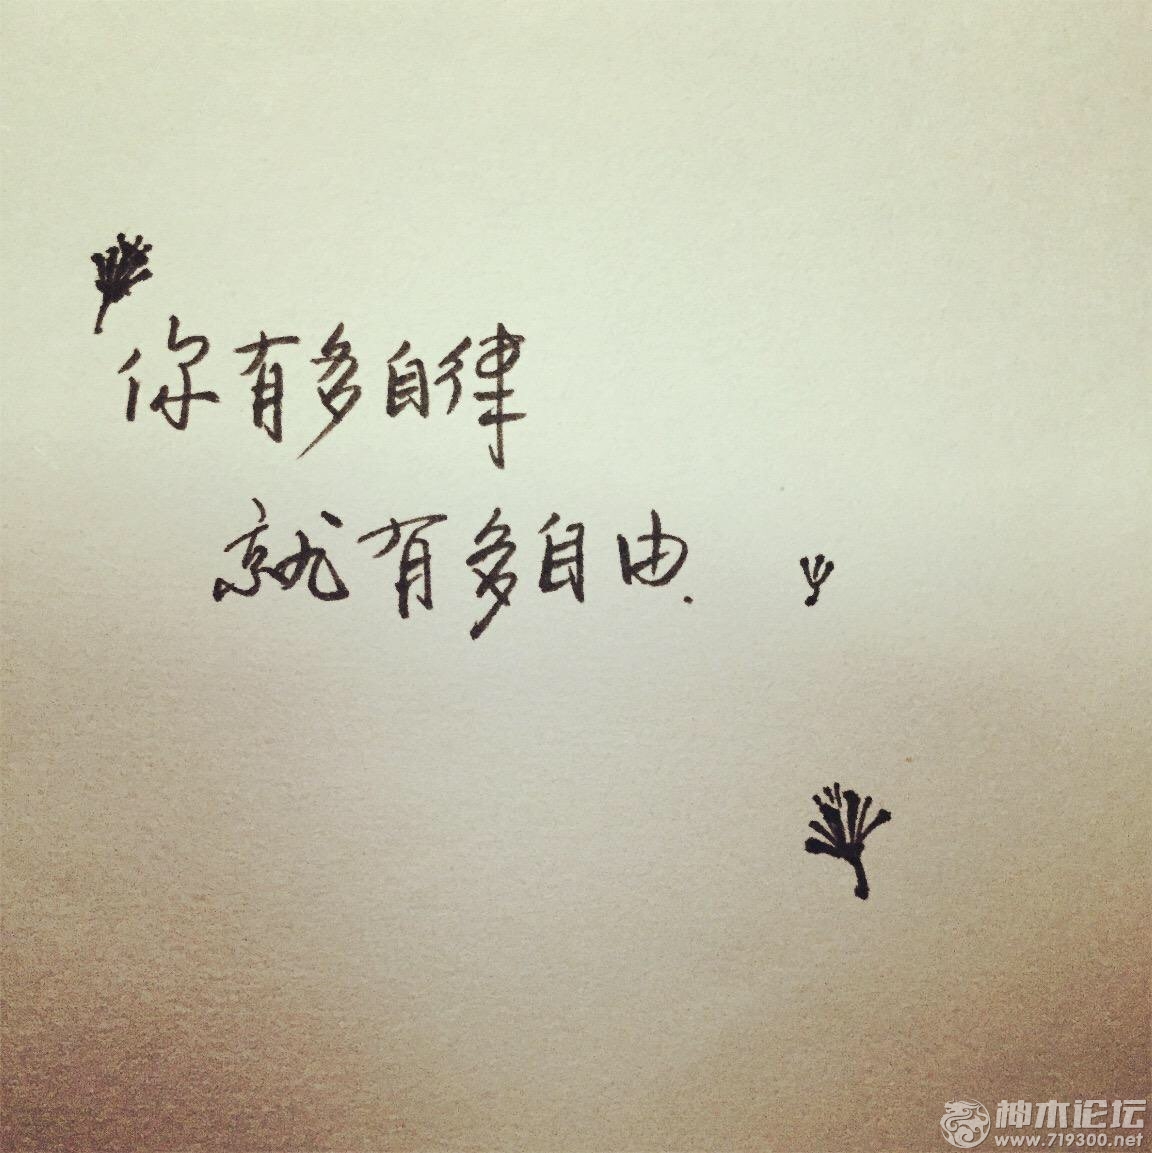 你有多自律
就有多自由.
神木论坛
www.719300.net